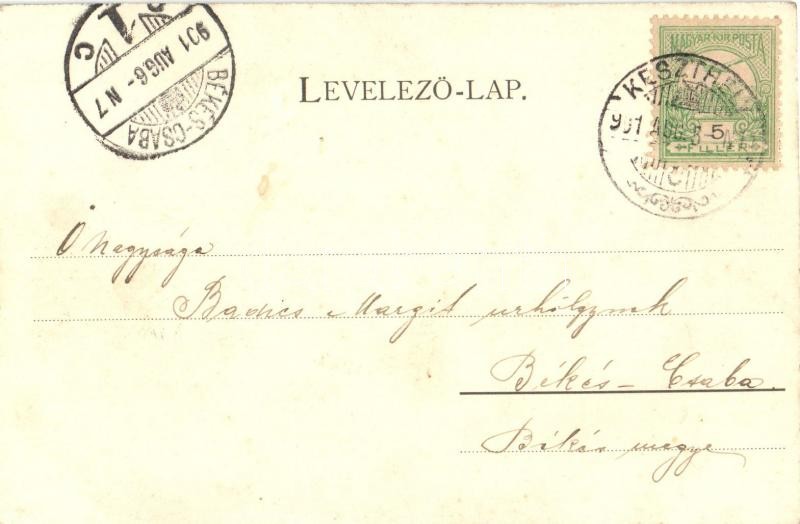 BÉKÉS-CSABA
901 AUG 6 - N 7
1
C
LEVELEZÖ-LAP.
MAGYAR KIR. POSTA
KESZTHELY
901 AUG.
5
FILLÉR
Ő Nagysága
Badics Margit urhölgynek
Békés-Csaba.
Békés megye